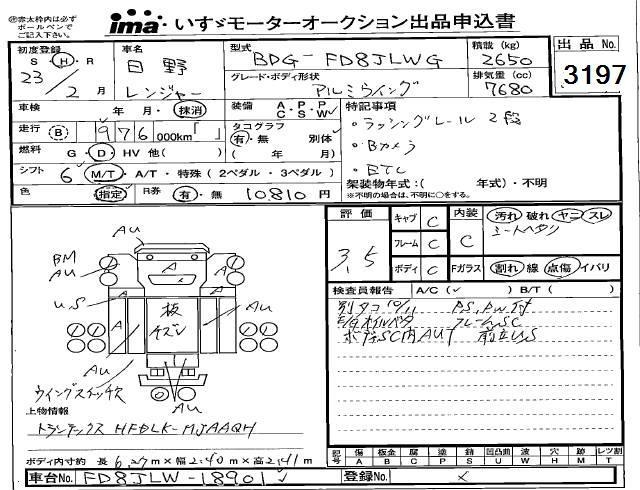 ㊟赤太枠内は必ず
ボールペンで
ご記入下さい。
ima いすゞモーターオークション出品申込書
初度登録 S・H・R 23年 2月
車名 日野 レンジャー
型式 BDG-FD8JLWG
グレード・ボディ形状 アルミウイング
積載 (kg) 2650
排気量 (cc) 7680
出品 No. 3197
車検 年・月・抹消
装備 A・P・P C・S・W
走行 B 976 000km「 」
タコグラフ 有・無 別体 ( 年 月)
燃料 G・D・HV 他( )
シフト 6 M/T・A/T・特殊(2ペダル・3ペダル)
色 指定
R券 有・無 10,810 円
特記事項
・ラッシングレール 2段
・Bカメラ
・ETC
架装物年式:( 年式)・不明
※不明の場合は、不明に○をする。
評価 3.5
キャブ C
フレーム C
ボディ C
内装 C
汚れ 破れ ヤニ スレ
シートヘタリ
Fガラス 割れ 線 点傷 イバリ
検査員報告 A/C( ✓ ) B/T( )
別タコ10/11 PS,PW付
フレームSC
ボディSC内AU 前立US
AU
BM
AU
A
A
A
U.S
A
A
板
キズU
AU
AU
AU
ウイングスイッチ欠
上物情報
トランテックス HFBLK-MJAAQH
ボディ内寸約 長 6.27m×幅 2.40m×高 2.41m
記号 傷 A 板金 B 腐 C 塗 P 錆 S 凹凸曲 U 波 W 穴 H 跡 M レツ割 T
車台No. FD8JLW-18901
登録No.